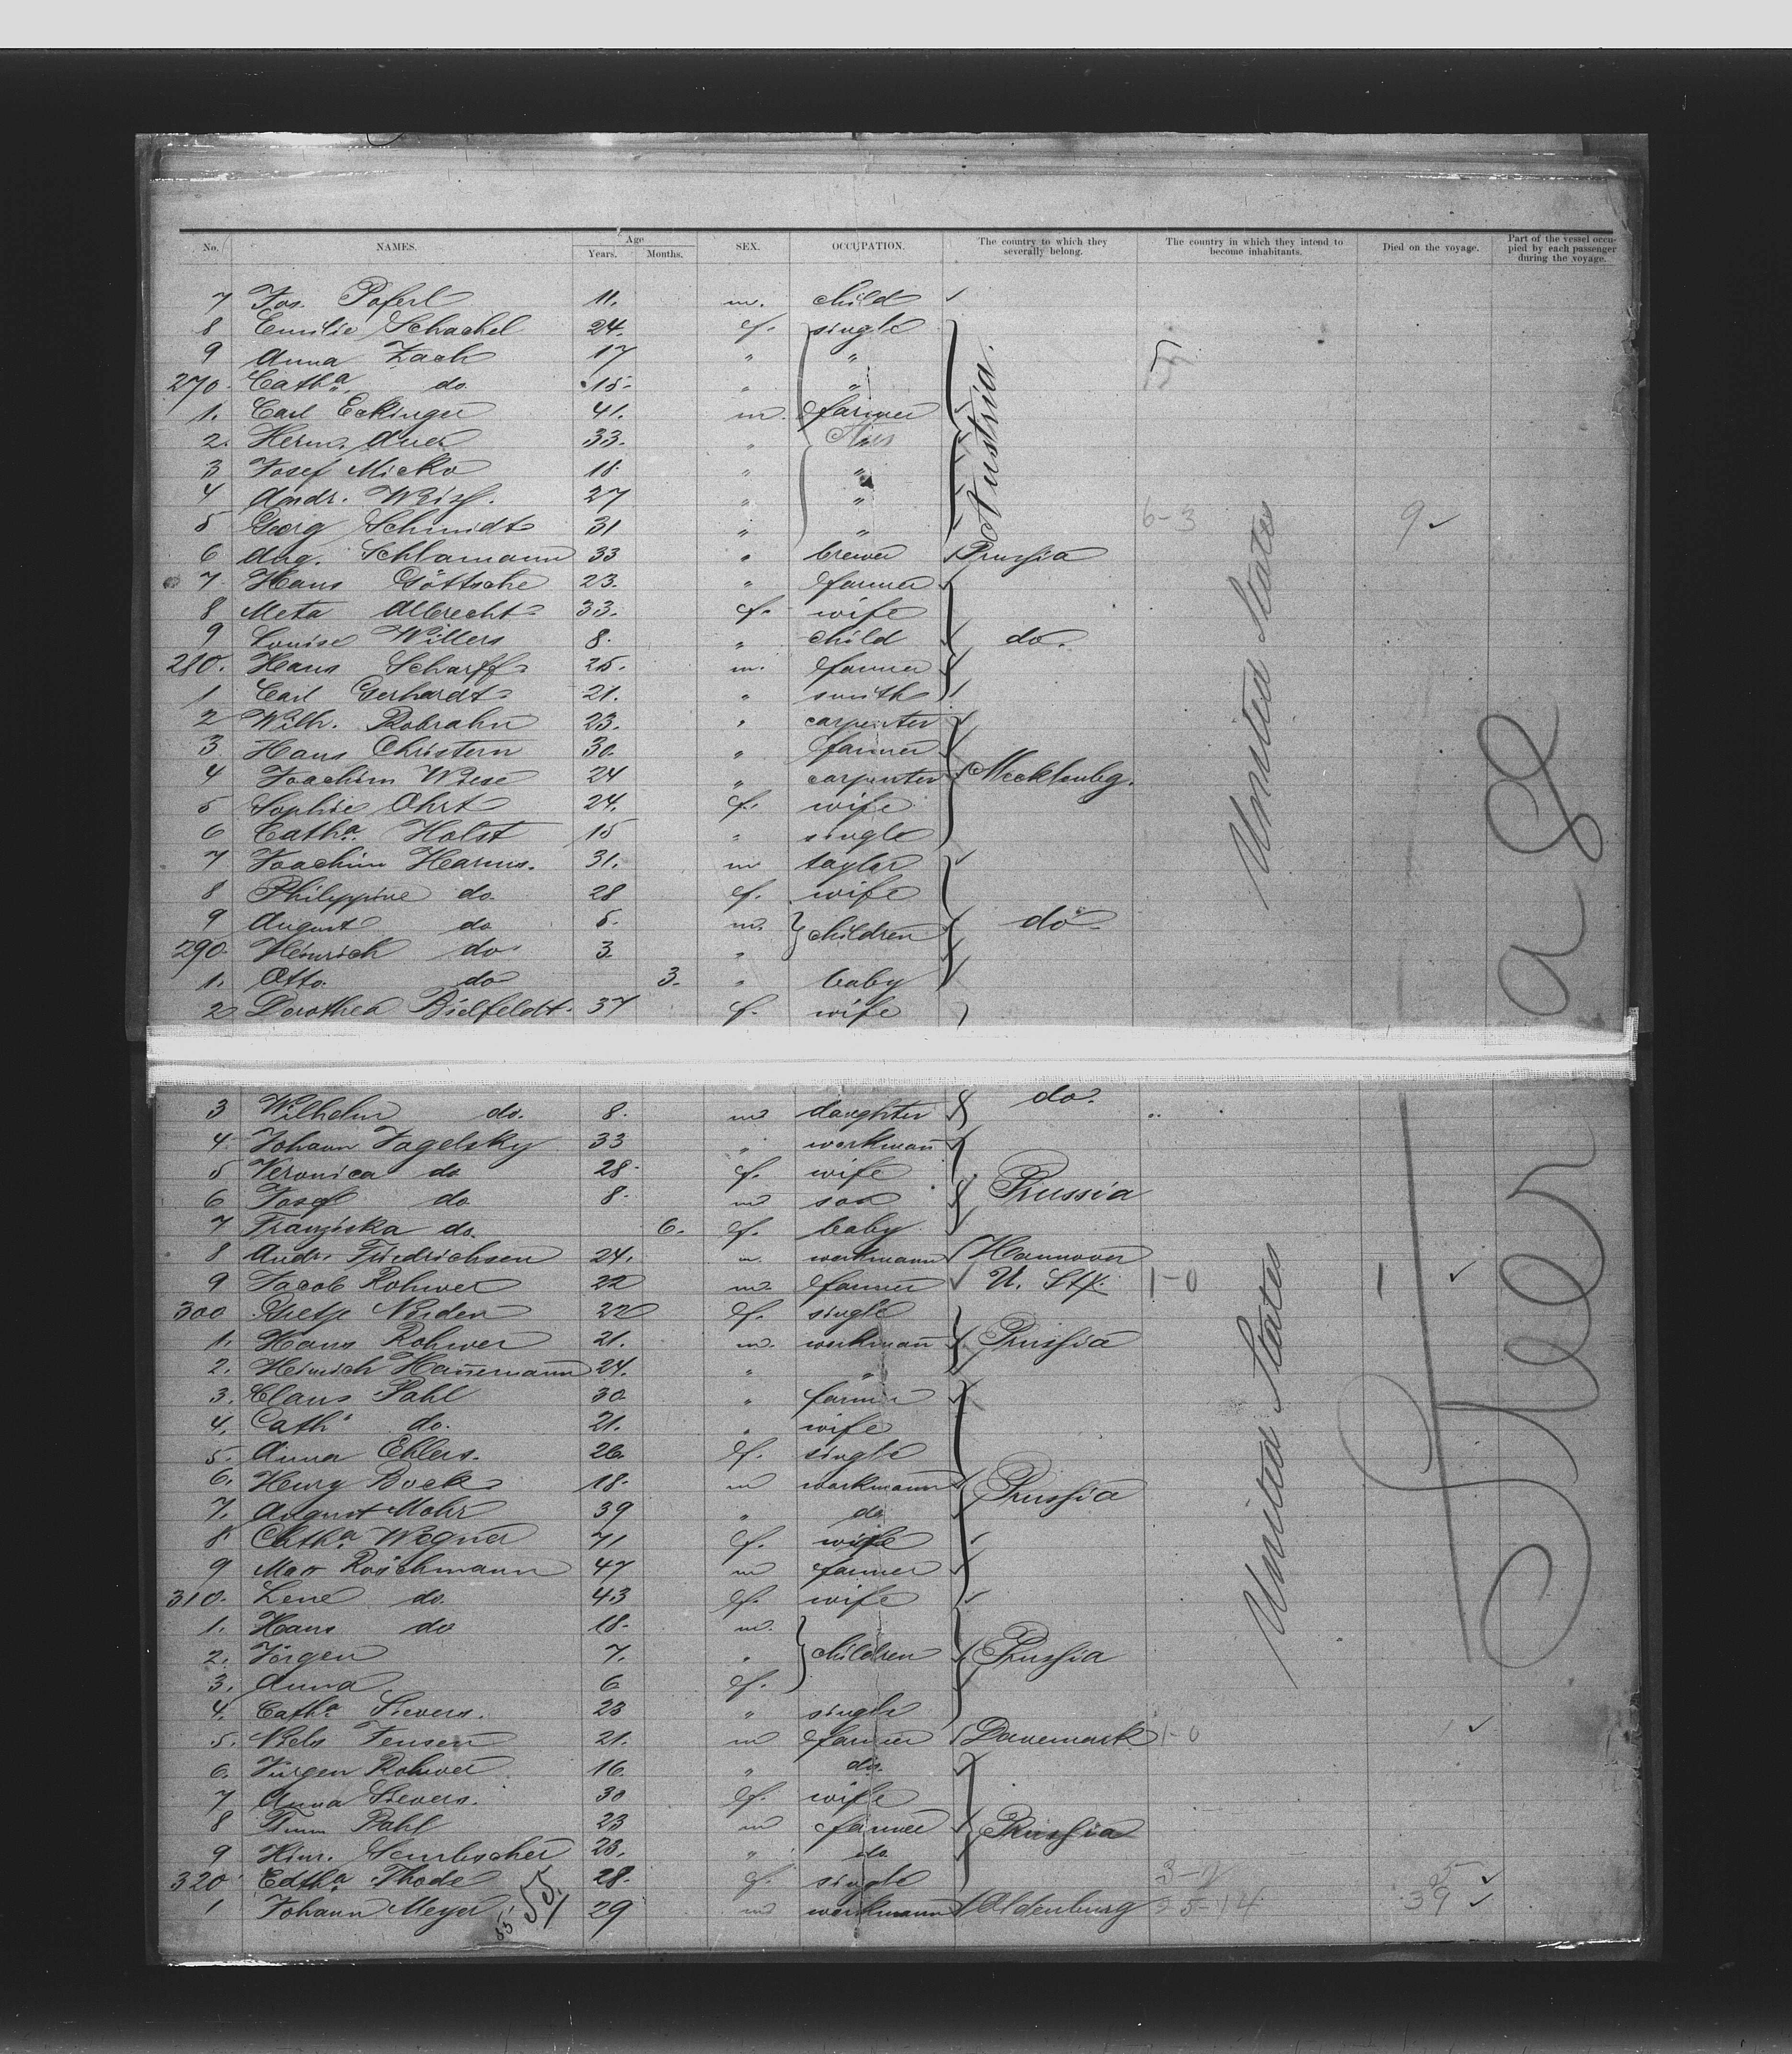 No. NAMES. Age Years. Months. SEX. OCCUPATION. The country to which they severally belong. The country in which they intend to become inhabitants. Died on the voyage. Part of the vessel occupied by each passenger during the voyage.
7 Jos. Poferl 11. m. child
8 Emilie Schachel 24. f. single
9 Anna Zach 17 " "
270. Catha. do 15. " "
1. Carl Eckinger 41. m. farmer
2. Herm. Auer 33. "
3 Josef Micko 18. " "
4 Andr. 27 " "
5 Georg Schmidt 31 " "
Austria.
6-3 9
6 Aug. Schlamann 33 " brewer Prussia
7 Hans Göttsche 23. " farmer
8 Meta Albrecht 33. f. wife
9 Louise Willers 8. " child do.
280. Hans Scharff 25. m. farmer
1 Carl Gerhardt 21. " smith
2 Wilh. Robrahn 23. " carpenter
3 Hans Christern 30. " farmer
4 Joachim Wiese 24 " carpenter Mecklenbg.
5 Sophie Ohrt 24. f. wife
6 Catha. Holst 15 " single
7 Joachim Harms. 31. m taylor
8 Philippine do. 28 f. wife
9 August do 5. m. children do
290. Heinrich do 3. "
1. Otto. do 3. " baby
2 Dorothea Bielfeldt. 37 f. wife
United States
3 Wilhelm do. 8. m daughter do.
4. Johann Jagelsky 33 " workmann
5 Veronica do 28. f. wife
6 Josef do 8. m son Prussia
7 Franziska do. 6. f. baby
8 Andr. Fridrichsen 24. m. workmann Hannover
9 Jacob Rohwer 22 m. farmer U. St. 1-0 1
300 Norden 22 f. single
1. Hans Rohwer 21. m. workmann Prussia
2. Heinrich Hannemann 24. " "
3. Claus Pahl 30 " farmer
4. Cath. do. 21. " wife
5. Anna Ehlers. 26. f. single
6. Henry Bock 18. m workmann Prussia
7. August Mohr 39 " do
8. Catha. Wegner 71 f. wife
9 Max Röschmann 47 m farmer
310. Lene do. 43 f. wife
1. Hans do 18. m.
2. Jörgen 7. " children Prussia
3. Anna 6 f.
4. Catha. Sievers. 23 " single
5. Niels Jensen 21. m farmer Danemark 1-0 1
6. Jürgen Rohwer 16. " do.
7 Anna Sievers. 30 f. wife
8 Pahl 23 m farmer Prussia
9 Hinr. 23. " do
320 Thode 28. f. single 3-2 5
1 Johann Meyer 29 m workmann Oldenburg 25-14 39
55
United States
Steerage